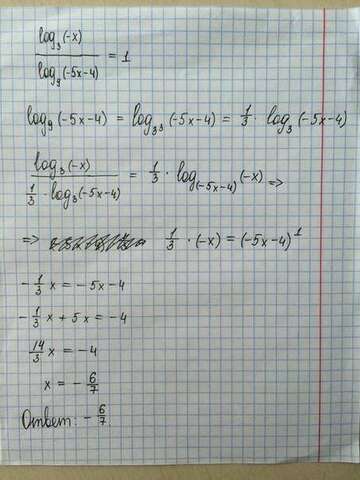 log₃(-x) / log₉(-5x-4) = 1
log₉(-5x-4) = log₃³(-5x-4) = 1/3 · log₃(-5x-4)
log₃(-x) / (1/3 · log₃(-5x-4)) = 1/3 · log₍₋₅ₓ₋₄₎(-x) =>
=> 1/3 · (-x) = (-5x-4)¹
- 1/3 x = -5x-4
- 1/3 x + 5x = -4
14/3 x = -4
x = - 6/7
Ответ: - 6/7